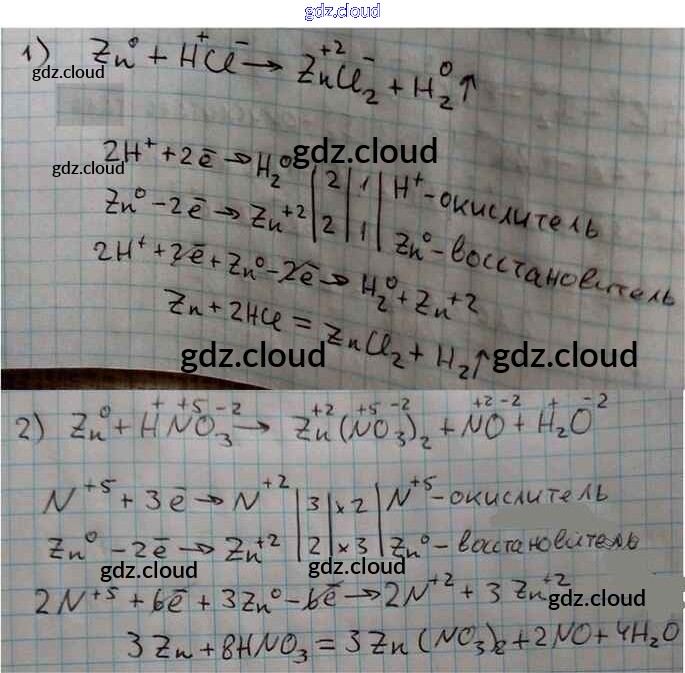 gdz.cloud
1) Zn⁰ + H⁺Cl⁻ → Zn⁺²Cl⁻₂ + H₂⁰↑
gdz.cloud
2H⁺ + 2ē → H₂⁰ | 2 | 1 | H⁺ - окислитель
gdz.cloud
gdz.cloud
Zn⁰ - 2ē → Zn⁺² | 2 | 1 | Zn⁰ - восстановитель
2H⁺ + 2ē + Zn⁰ - 2ē → H₂⁰ + Zn⁺²
Zn + 2HCl = ZnCl₂ + H₂↑
gdz.cloud gdz.cloud
2) Zn⁰ + H⁺N⁺⁵O⁻²₃ → Zn⁺²(N⁺⁵O⁻²₃)₂ + N⁺²O⁻² + H⁺₂O⁻²
N⁺⁵ + 3ē → N⁺² | 3 | ×2 | N⁺⁵ - окислитель
Zn⁰ - 2ē → Zn⁺² | 2 | ×3 | Zn⁰ - восстановитель
gdz.cloud gdz.cloud
2N⁺⁵ + 6ē + 3Zn⁰ - 6ē → 2N⁺² + 3Zn⁺²
gdz.cloud
3Zn + 8HNO₃ = 3Zn(NO₃)₂ + 2NO + 4H₂O